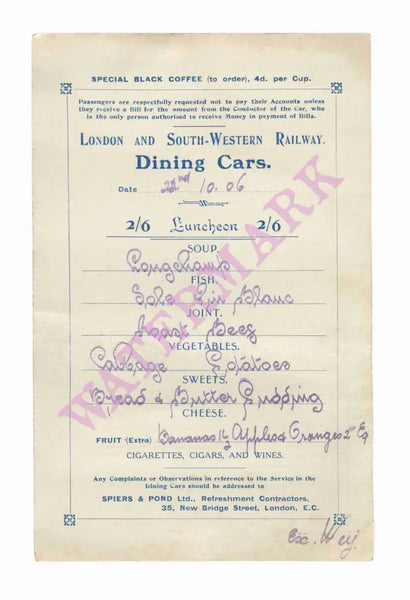 SPECIAL BLACK COFFEE (to order), 4d. per Cup.
Passengers are respectfully requested not to pay their Accounts unless
they receive a Bill for the amount from the Conductor of the Car, who
is the only person authorised to receive Money in payment of Bills.
LONDON AND SOUTH-WESTERN RAILWAY.
Dining Cars.
Date 22nd 10. 06
2/6 Luncheon 2/6
SOUP.
Longchamp
FISH.
Sole Vin Blanc
JOINT.
Roast Beef
VEGETABLES.
Cabbage Potatoes
SWEETS.
Bread & Butter Pudding
CHEESE.
FRUIT (Extra) Bananas 1½ Apples & Oranges 2d Ea
CIGARETTES, CIGARS, AND WINES.
Any Complaints or Observations in reference to the Service in the
Dining Cars should be addressed to
SPIERS & POND Ltd., Refreshment Contractors,
35, New Bridge Street, London, E.C.
Ex. Wey.
WATERMARK